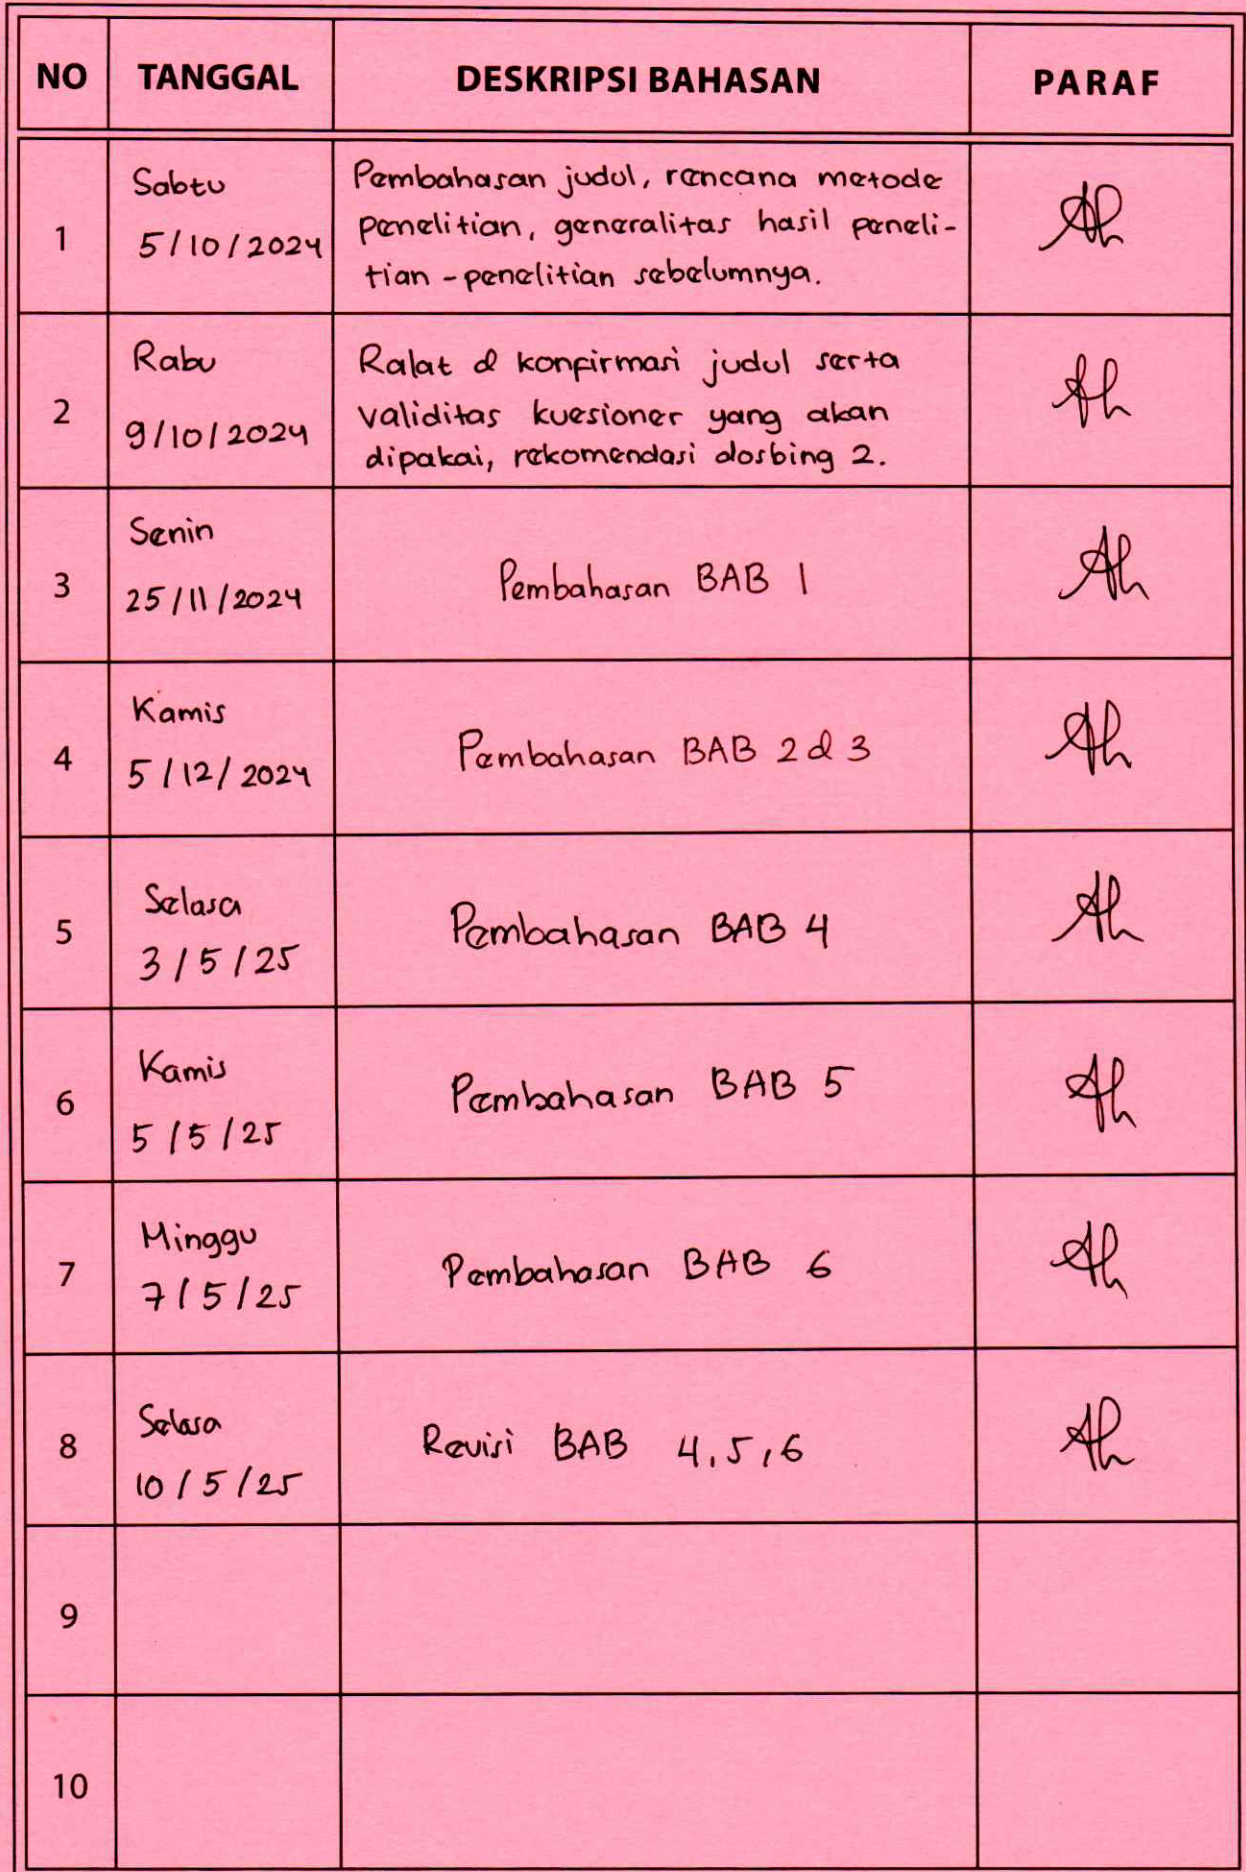 NO TANGGAL DESKRIPSI BAHASAN PARAF
1
Sabtu
5/10/2024
Pembahasan judul, rencana metode
penelitian, generalitas hasil peneli-
tian-penelitian sebelumnya.
2
Rabu
9/10/2024
Ralat & konfirmasi judul serta
validitas kuesioner yang akan
dipakai, rekomendasi dosbing 2.
3
Senin
25/11/2024
Pembahasan BAB 1
4
Kamis
5/12/2024
Pembahasan BAB 2 & 3
5
Selasa
3/5/25
Pembahasan BAB 4
6
Kamis
5/5/25
Pembahasan BAB 5
7
Minggu
7/5/25
Pembahasan BAB 6
8
Selasa
10/5/25
Revisi BAB 4,5,6
9
10